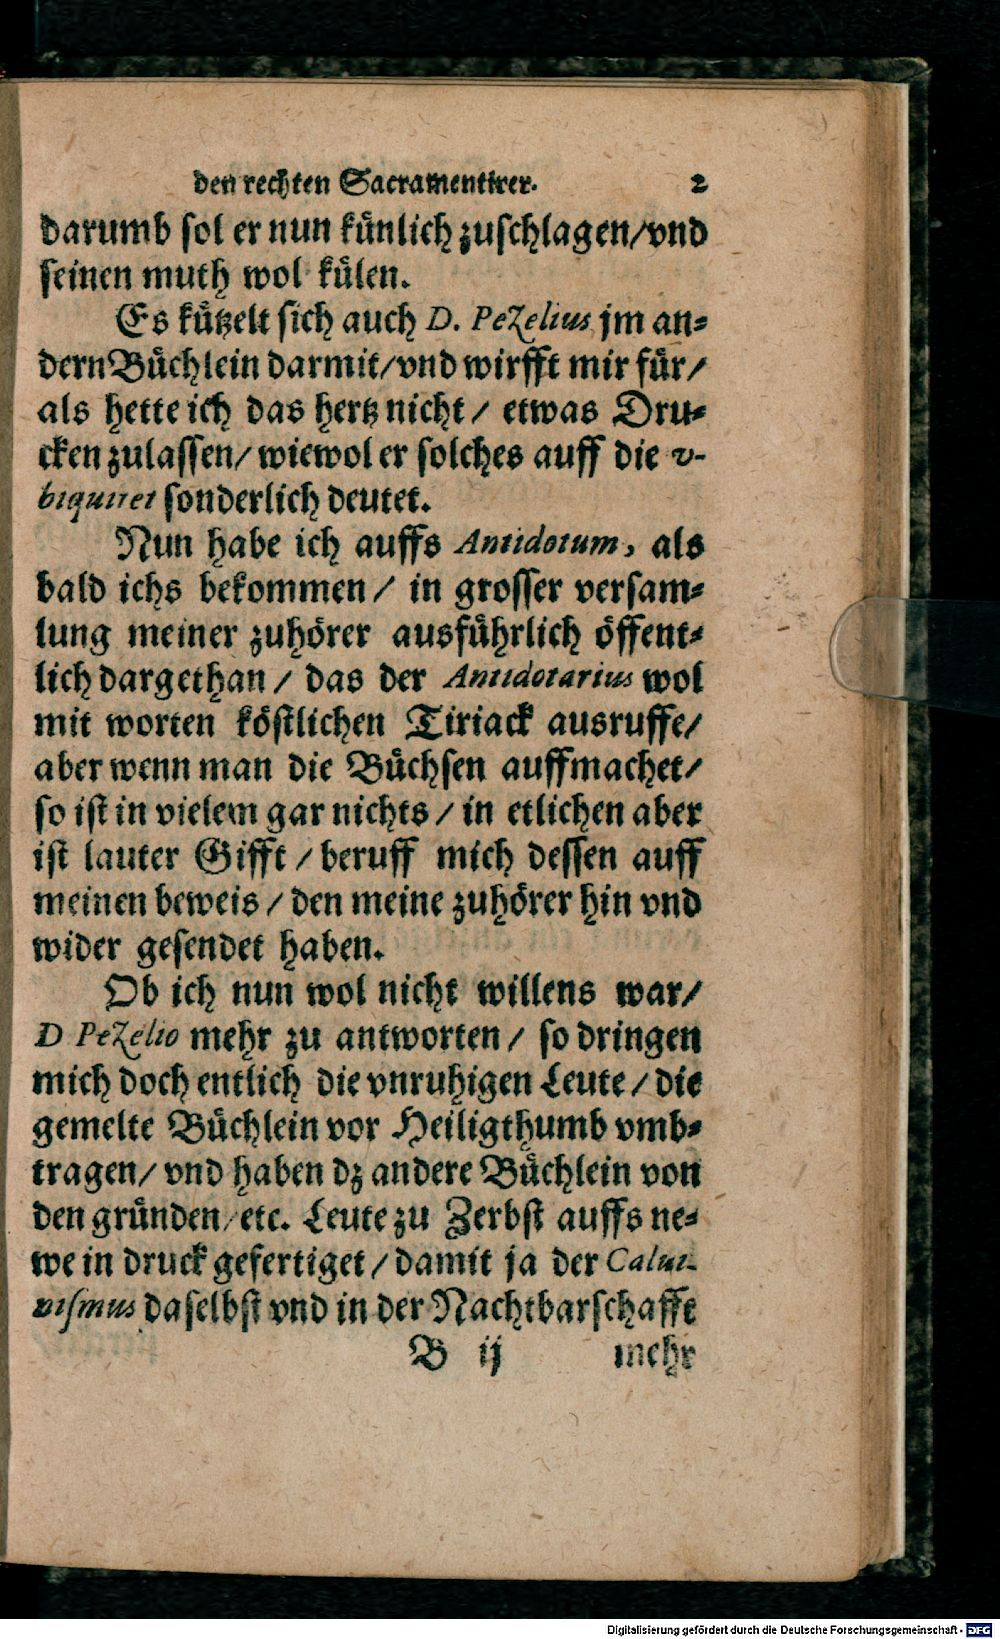 den rechten Sacramentirer. 2
darumb sol er nun künlich zuschlagen/vnd
seinen muth wol külen.
Es kützelt sich auch D. Pezelius jm an-
dern Büchlein darmit/vnd wirfft mir für/
als hette ich das hertz nicht/ etwas Dru-
cken zulassen/ wiewol er solches auff die v-
biquitet sonderlich deutet.
Nun habe ich auffs Antidotum, als
bald ichs bekommen/ in grosser versam-
lung meiner zuhörer ausführlich öffent-
lich dargethan/ das der Antidotarius wol
mit worten köstlichen Tiriack ausruffe/
aber wenn man die Büchsen auffmachet/
so ist in vielem gar nichts/ in etlichen aber
ist lauter Gifft/ beruff mich dessen auff
meinen beweis/ den meine zuhörer hin vnd
wider gesendet haben.
Ob ich nun wol nicht willens war/
D Pezelio mehr zu antworten/ so dringen
mich doch entlich die vnruhigen Leute/ die
gemelte Büchlein vor Heiligthumb vmb-
tragen/ vnd haben dz andere Büchlein von
den gründen/ etc. Leute zu Zerbst auffs ne-
we in druck gefertiget/ damit ja der Calui-
nismus daselbst vnd in der Nachtbarschafft
B ij mehr
Digitalisierung gefördert durch die Deutsche Forschungsgemeinschaft - DFG